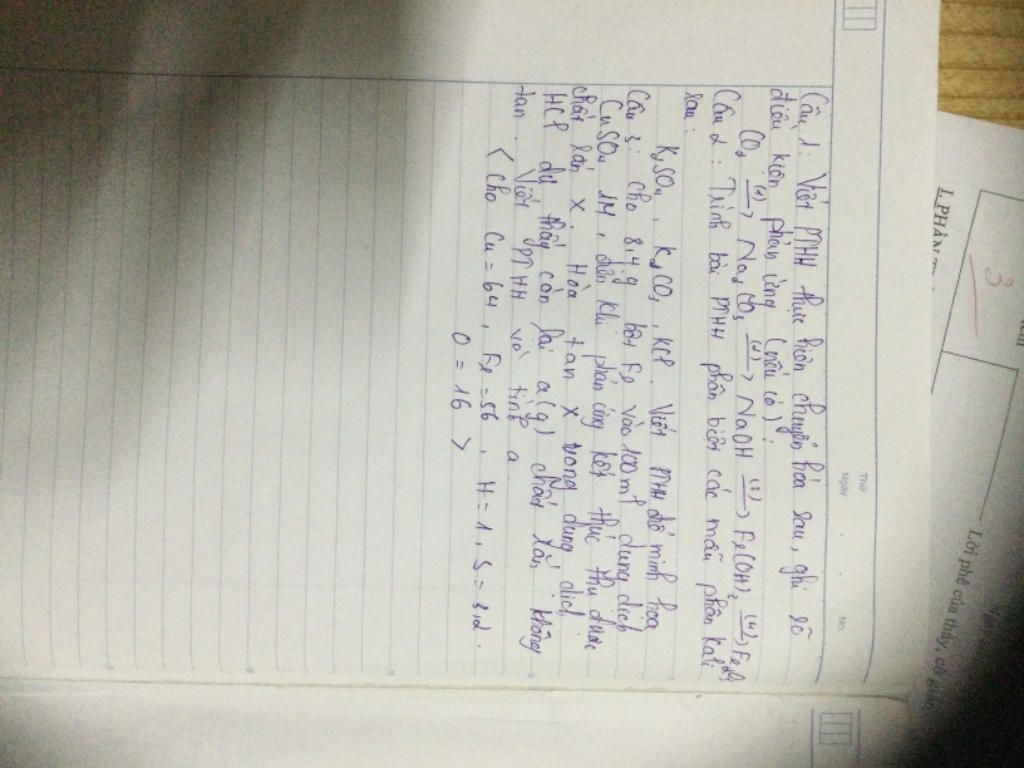 Thứ
Ngày
No.
Câu 1: Viết PTHH thực hiện chuyển hóa sau, ghi rõ
điều kiện phản ứng (nếu có)?
CO₂ (1)→ Na₂CO₃ (2)→ NaOH (3)→ Fe(OH)₃ (4)→ Fe₂O₃
Câu 2: Trình bài PTHH phân biệt các mẫu phân Kali
sau:
K₂SO₄, K₂CO₃, KCl. Viết PTHH để minh họa
Câu 3: cho 8,4g bột Fe vào 100ml dung dịch
CuSO₄ 1M, đến khi phản ứng kết thúc thu được
chất rắn X. Hòa tan X trong dung dịch
HCl dư thấy còn lại a(g) chất rắn không
tan. Viết PTHH và tính a.
< cho Cu = 64, Fe = 56, H = 1, S = 32.
O = 16 >
3
I. PHẦN
Lời phê của thầy, cô giáo